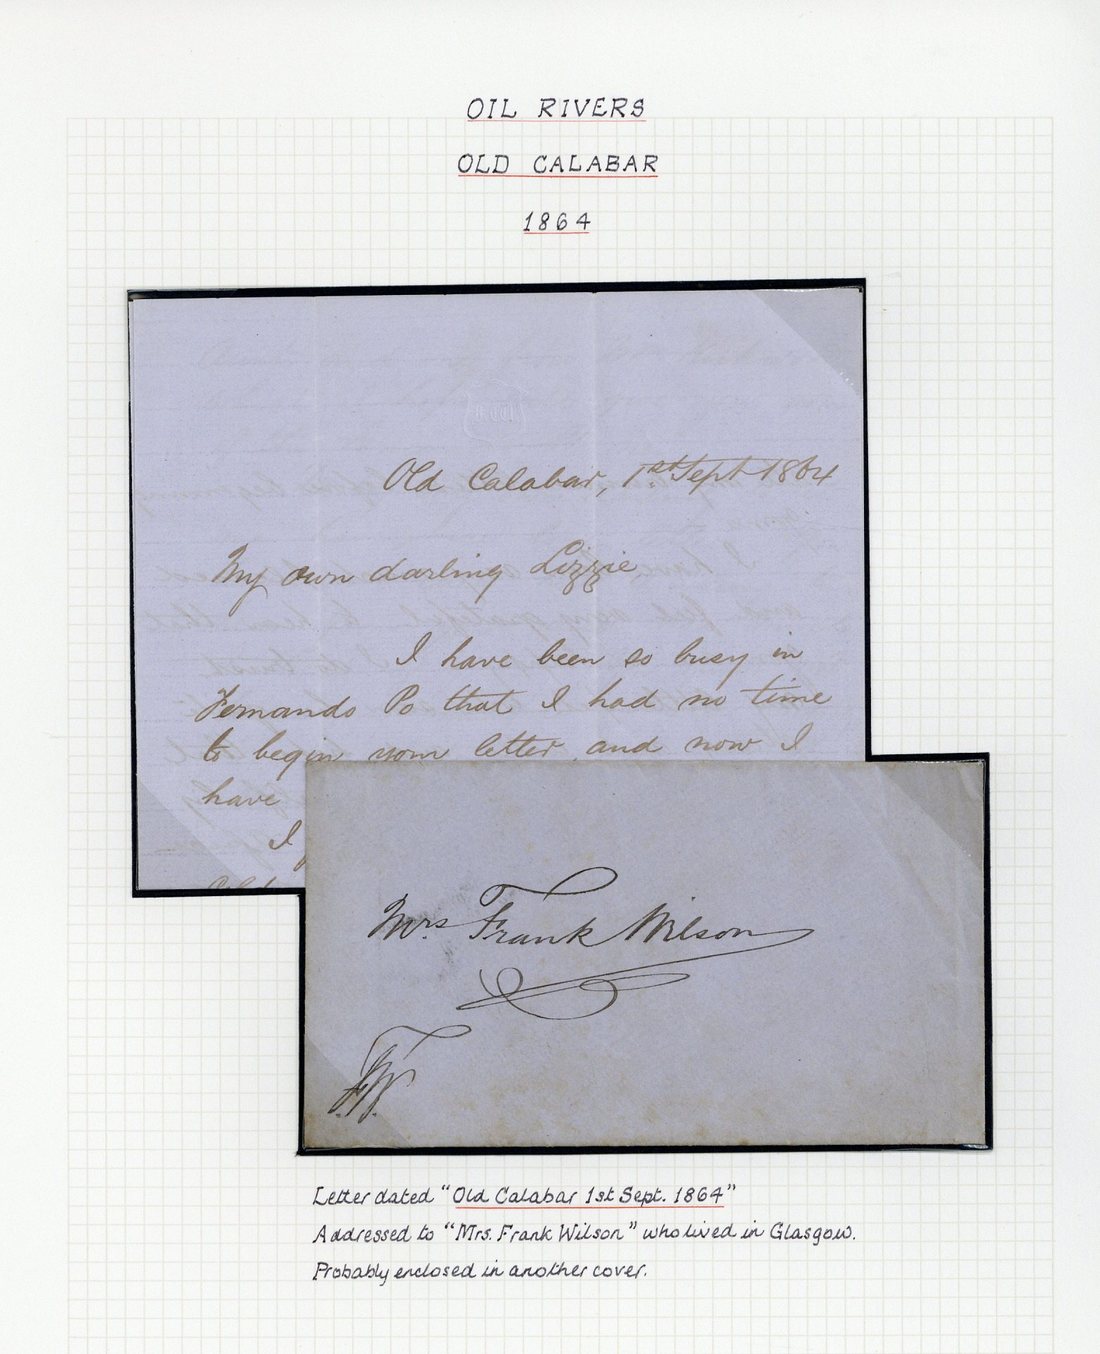 OIL RIVERS
OLD CALABAR
1864
Old Calabar, 1st Sept 1864
My own darling Lizzie
I have been so busy in
Fernando Po that I had no time
to begin your letter, and now I
have
I
Mrs. Frank Wilson
F.W.
Letter dated "Old Calabar 1st Sept. 1864"
Addressed to "Mrs. Frank Wilson" who lived in Glasgow.
Probably enclosed in another cover.